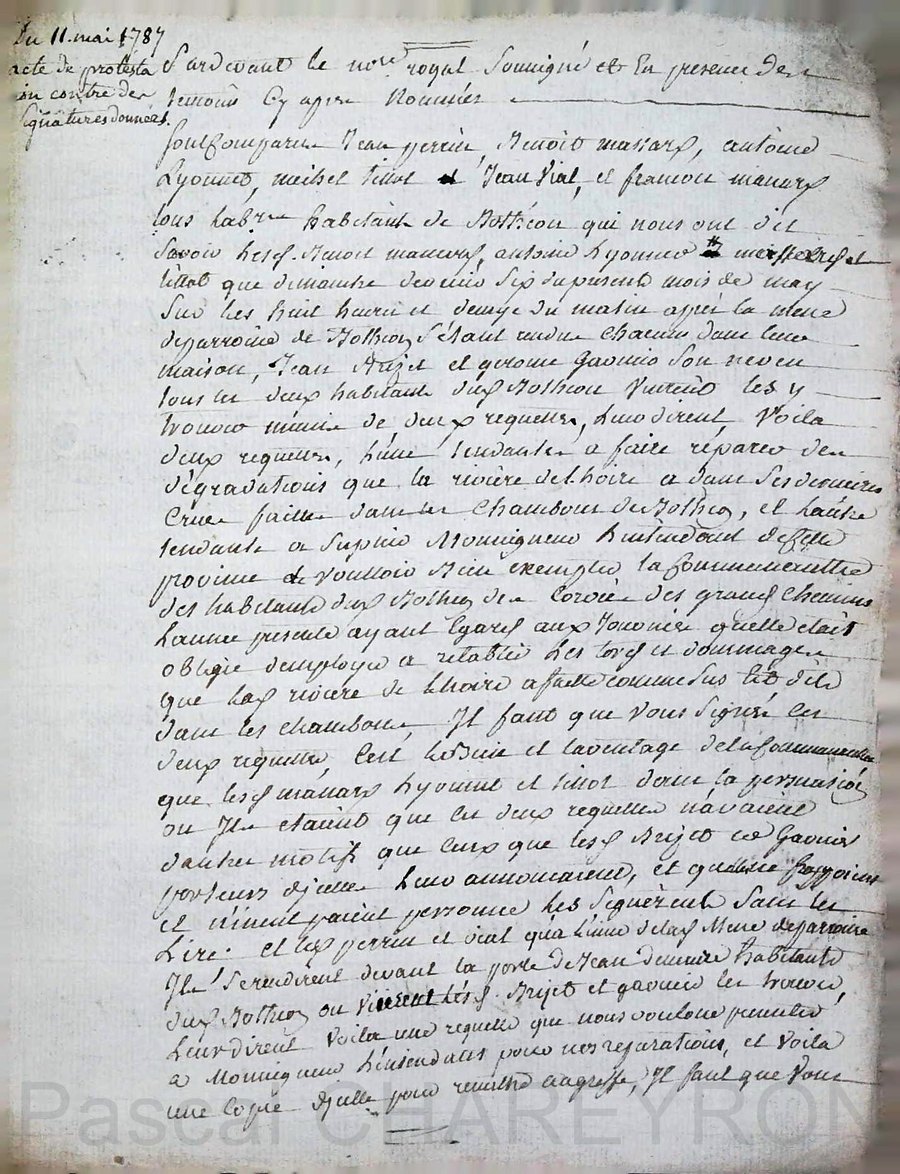 Du 11. mai 1787
acte de protesta
on contre des
signatures données.
Pardevant le no.re royal soussigné et En presence des
temoins Cy apres Nommés
sont Comparus Jean perrin, Benoît massard, antoine
Lyonnet, michel tillot et Jean Vial, et francois
tous lab.rs habitants de Bothéon qui nous ont dit
savoir Lesd. Benoit, antoine Lyonnet
tillot que dimanche dernier six du present mois de may
sur les huit heures et demye du matin après la messe
deparroisse de Bothéon s'étant rendus Chacun dans leur
maison, Jean Brijet et gerome Gaonier son neveu
tous les deux habitants dud. Bothéon Vinrent les y
trouver munis de deux requettes, Leur dirent, Voila
deux requettes, L'une tendante a faire réparer des
dégradations que la rivière de Lhoire a dans ses dernieres
Crues faittes dans les Chambons de Bothéon, et L'autre
tendante a suplier Monseigneur L'intendant de Cette
province de Voulloir Bien exempter la Communeautté
des habitants dud. Bothéon des Corvées des grands Chemins
L'année presente ayant Egard aux Journées quelle était
obligée demployer a retablir Les torts et dommages
que lad. riviere de Lhoire a faitte comme sus est dit
dans les chambons, Il faut que Vous signés les
deux requettes, C'est Le Bien et lavantage de la Communeautté
que lesd. Lyonnet et tillot dans la persuasion
ou Ils etaient que les deux requettes n'avaient
dautres motifs que Ceux que lesd. Brijet et Gaonier
porteurs d'jcelles Leur annoncaient, et
et personne Les signèrent sans les
Lire. et lesd. perrin et vial qua L'issue de lad. Messe deparroisse
Ils se rendirent devant la porte de Jean habitants
dud. Bothéon ou Vinrent Lesd. Brijet et gaonier les trouver,
Leur dirent Voila une requette que nous voulons presenter
a Monseigneur L'intendant pour nos reparations, et Voila
une Copie d'jcelle pour remettre au greffe, Il faut que Vous
Pascal CHAREYRON